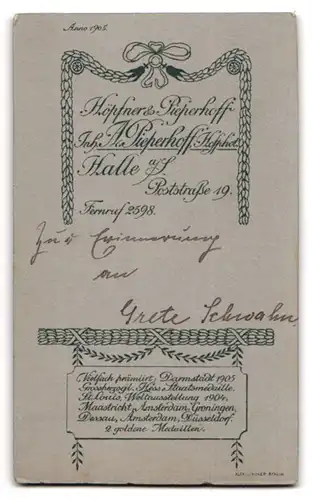 Anno 1905.
Höpfner & Pieperhoff
Inh. A. Pieperhoff, Hofphot.
Halle a/S.
Poststraße 19.
Fernruf 2598.
Zur Erinnerung
an
Grete Schwahn.
Vielfach prämiirt, Darmstadt 1905
Grossherzogl. Hess. Staatsmedaille.
St. Louis, Weltausstellung 1904.
Maastricht, Amsterdam, Groningen,
Dessau, Amsterdam, Düsseldorf.
2 goldene Medaillen.